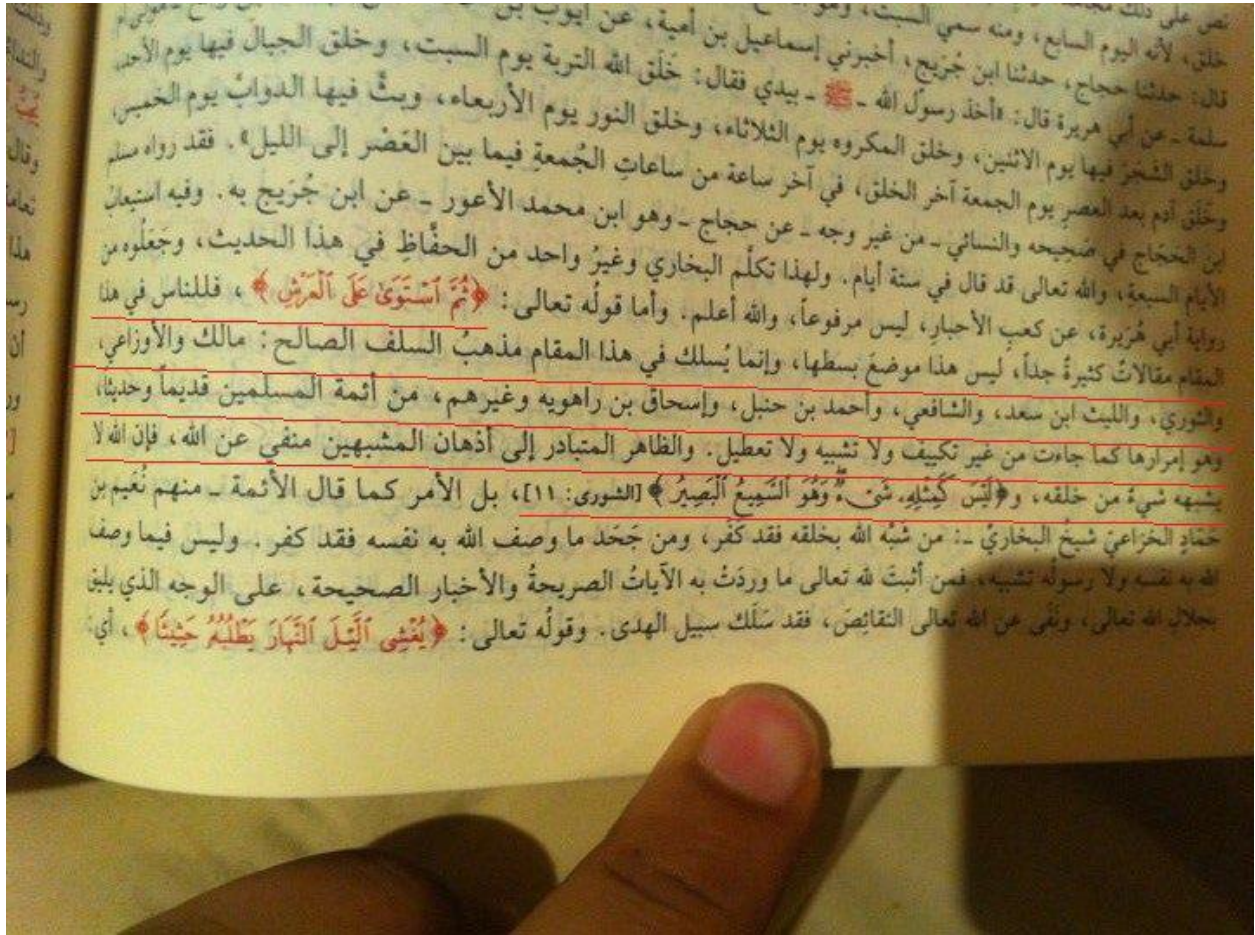 نص على ذلك
خلق، لأنه اليوم السابع، ومنه سمي السبت، وهو
قال: حدثنا حجاج، حدثنا ابن جُرَيج، أخبرني إسماعيل بن أمية، عن أيوب بن
سلمة ـ عن أبي هريرة قال: «أخذ رسول الله ـ ﷺ ـ بيدي فقال: خَلَق الله التربة يوم السبت، وخلق الجبال فيها يوم الأحد،
وخلق الشجَرَ فيها يوم الاثنين، وخلق المكروه يوم الثلاثاء، وخلق النور يوم الأربعاء، وبثَّ فيها الدوابَّ يوم الخميس،
وخَلَق آدم بعد العصرِ يوم الجمعة آخر الخلق، في آخر ساعة من ساعاتِ الجُمعةِ فيما بين العَصْر إلى الليل». فقد رواه مسلم
ابن الحَجّاج في صَحِيحه والنسائي ـ من غير وجه ـ عن حجاج ـ وهو ابن محمد الأعور ـ عن ابن جُرَيج به. وفيه استيعابُ
الأيام السبعةِ، والله تعالى قد قال في ستة أيام. ولهذا تكلَّم البخاري وغيرُ واحد من الحفَّاظِ في هذا الحديث، وجَعَلُوه من
رواية أبي هُرَيرة، عن كعبِ الأحبارِ، ليس مرفوعاً، والله أعلم. وأما قولُه تعالى: ﴿ثُمَّ ٱسْتَوَىٰ عَلَى ٱلْعَرْشِ﴾، فللناس في هذا
المقام مقالاتٌ كثيرةٌ جداً، ليس هذا موضعَ بسطها، وإنما يُسلك في هذا المقام مذهبُ السلف الصالح: مالك والأوزاعي،
والثوري، والليث ابن سعد، والشافعي، وأحمد بن حنبل، وإسحاق بن راهويه وغيرهم، من أئمة المسلمين قديماً وحديثاً،
وهو إمرارها كما جاءت من غير تكييف ولا تشبيه ولا تعطيل. والظاهر المتبادر إلى أذهان المشبهين منفي عن الله، فإن الله لا
يشبهه شيءٌ من خلقه، و﴿لَيْسَ كَمِثْلِهِۦ شَىْءٌ وَهُوَ ٱلسَّمِيعُ ٱلْبَصِيرُ﴾ [الشورى: ١١]، بل الأمر كما قال الأئمة ـ منهم نُعَيم بن
حَمَّادٍ الخزاعيّ شيخُ البخاريّ ـ: من شبَّه الله بخلقه فقد كَفَر، ومن جَحَد ما وصف الله به نفسه فقد كفر. وليس فيما وصف
الله به نفسه ولا رسولُه تشبيه، فمن أثبتَ لله تعالى ما وردَتْ به الآياتُ الصريحةُ والأخبار الصحيحة، على الوجه الذي يليق
بجلالِ الله تعالى، ونَفَى عن الله تعالى النقائِصَ، فقد سَلَك سبيل الهدى. وقولُه تعالى: ﴿يُغْشِى ٱلَّيْلَ ٱلنَّهَارَ يَطْلُبُهُۥ حَثِيثًا﴾، أي: